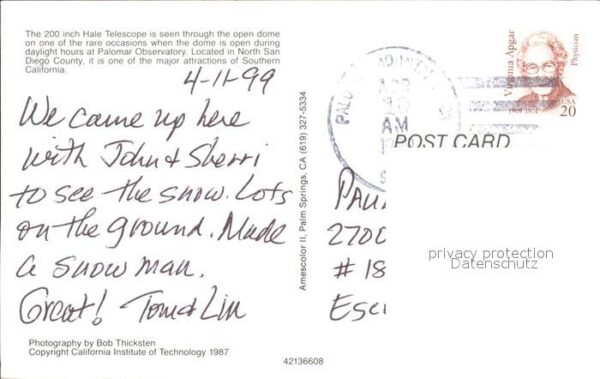 The 200 inch Hale Telescope is seen through the open dome
on one of the rare occasions when the dome is open during
daylight hours at Palomar Observatory. Located in North San
Diego County, it is one of the major attractions of Southern
California.
4-11-99
We came up here
with John & Sherri
to see the snow. Lots
on the ground. Made
a snow man.
Great! Tom & Lin
Photography by Bob Thicksten
Copyright California Institute of Technology 1987
Amescolor II, Palm Springs, CA (619) 327-5334
42136608
Virginia Apgar
Physician
1909-1974
USA
20
AM
POST CARD
2700
# 18
privacy protection
Datenschutz